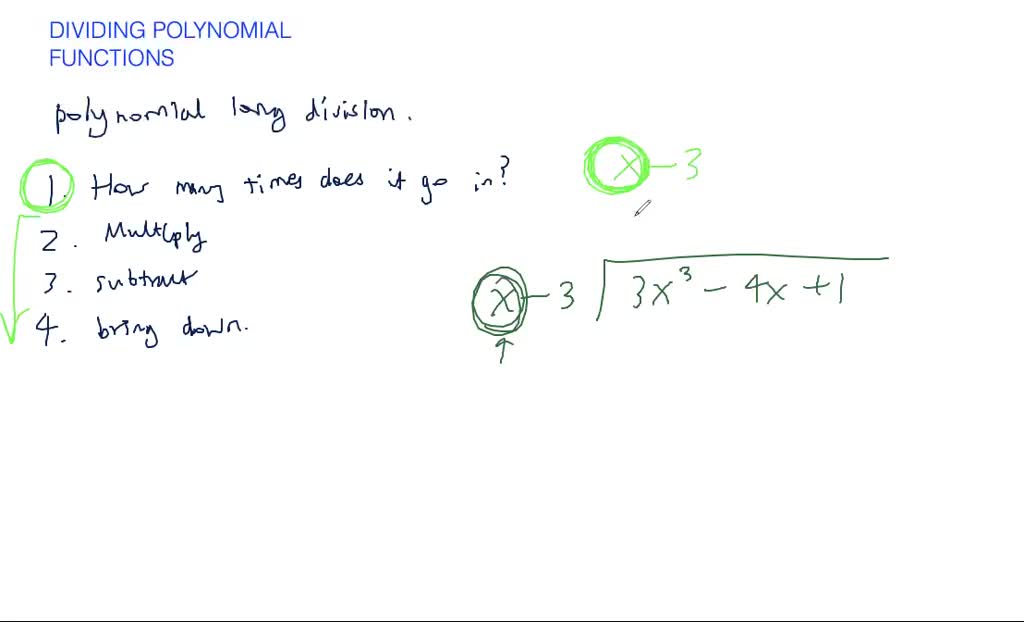 DIVIDING POLYNOMIAL
FUNCTIONS
polynomial long division.
1. How many times does it go in?
2. Multiply
3. subtract
4. bring down.
x - 3
x - 3 3x³ - 4x + 1